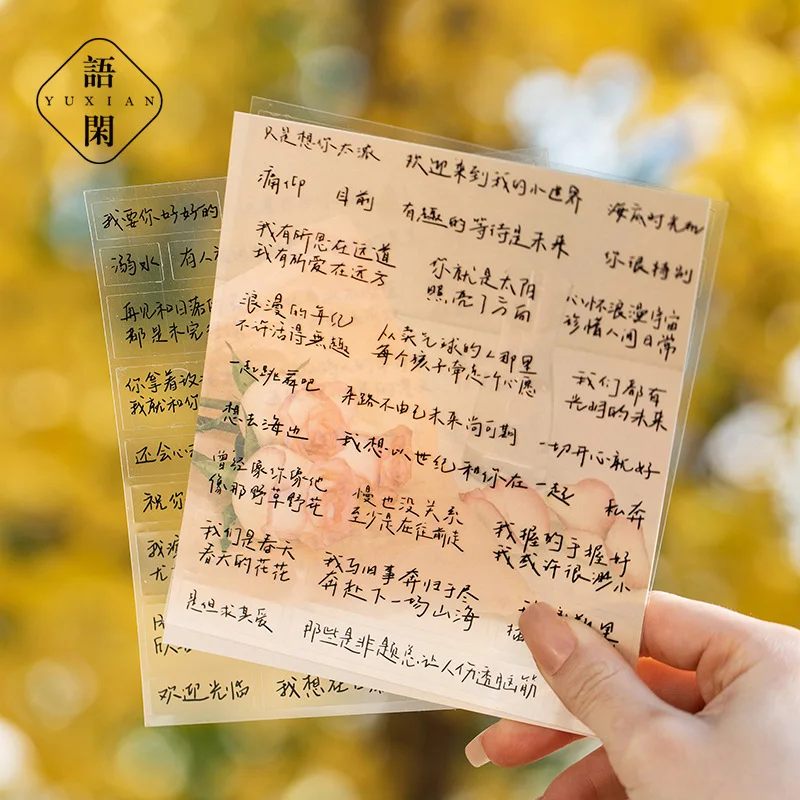 語
YUXIAN
閑
只是想你太浓
欢迎来到我的小世界
海底时光机
痛仰
目前
有趣的等待是未来
你很特别
我有所思在远道
我有所爱在远方
你就是太阳
照亮了方向
心怀浪漫宇宙
珍惜人间日常
浪漫的年纪
不许活得无趣
从卖气球的人那里
每个孩子牵走一个心愿
我们都有
光明的未来
一起跳舞吧
来路不由己未来尚可期
一切开心就好
想去海边
我想以世纪和你在一起
私奔
曾经像你像他
像那野草野花
慢也没关系
至少是在往前走
我握的手握好
我或许很渺小
我们是春天
春天的花花
我与旧事奔归于尽
奔赴下一场山海
是但求其爱
那些是非题总让人伤透脑筋
我要你好好的
溺水
有人
再见和日落
都是未完
你拿着
我就和你
还会心
祝你
我
尤
欢迎光临
我想在